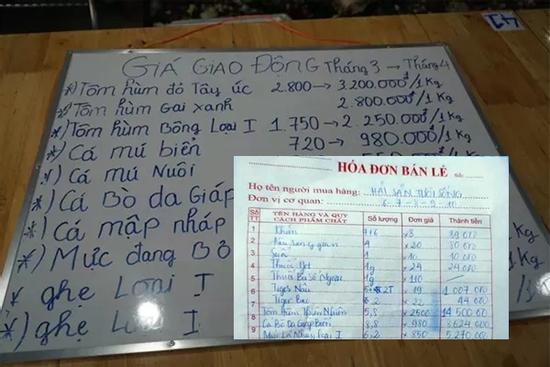 GIÁ GIAO ĐỘNG Tháng 3 → Tháng 4
*) Tôm hùm đỏ Tây úc 2.800 → 3.200.000đ/1 Kg
*) Tôm hùm Gai xanh 2.800.000đ/1 Kg
*) Tôm hùm Bông Loại I 1.750 → 2.250.000đ/1 Kg
*) Cá mú biển 720 → 980.000đ/1 Kg
*) Cá mú Nuôi
*) Cá Bò da Giáp
*) Cá mập nháp
*) Mực đang Bỏ
*) ghẹ Loại I
*) ghẹ Loại I
HÓA ĐƠN BÁN LẺ Số:
Họ tên người mua hàng: HẢI SẢN TƯƠI SỐNG
Đơn vị cơ quan: 6-7-8-9-10
Số TT TÊN HÀNG VÀ QUY CÁCH PHẨM CHẤT Số lượng Đơn giá Thành tiền
1 Khăn x3
2 4 x20 80 000
3 1 x10 10 000
4 Thuốc 1g x24 24 000
5 Thuốc Ba Số Ngoại 1g x110
6 Tiger Nâu x19 1 007 000
7 Tiger Bạc 2 x22 44 000
8 Tôm Hùm Thiên Nhiên 5,8 x2500 14 500 000
9 Cá Bò Da Giáp Biển 8,8 x980 8 624 000
6,2 x850 5 270 000